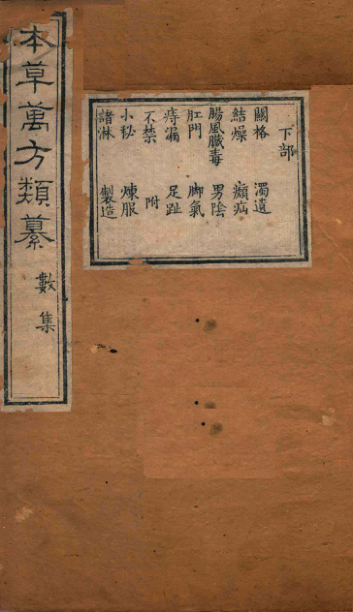 本草萬方類纂
數集
下部
關格 濁遺
結燥 癲疝
腸風臟毒 男陰
肛門 脚氣
痔漏 足趾
不禁 附
小秘 煉服
諸淋 製造